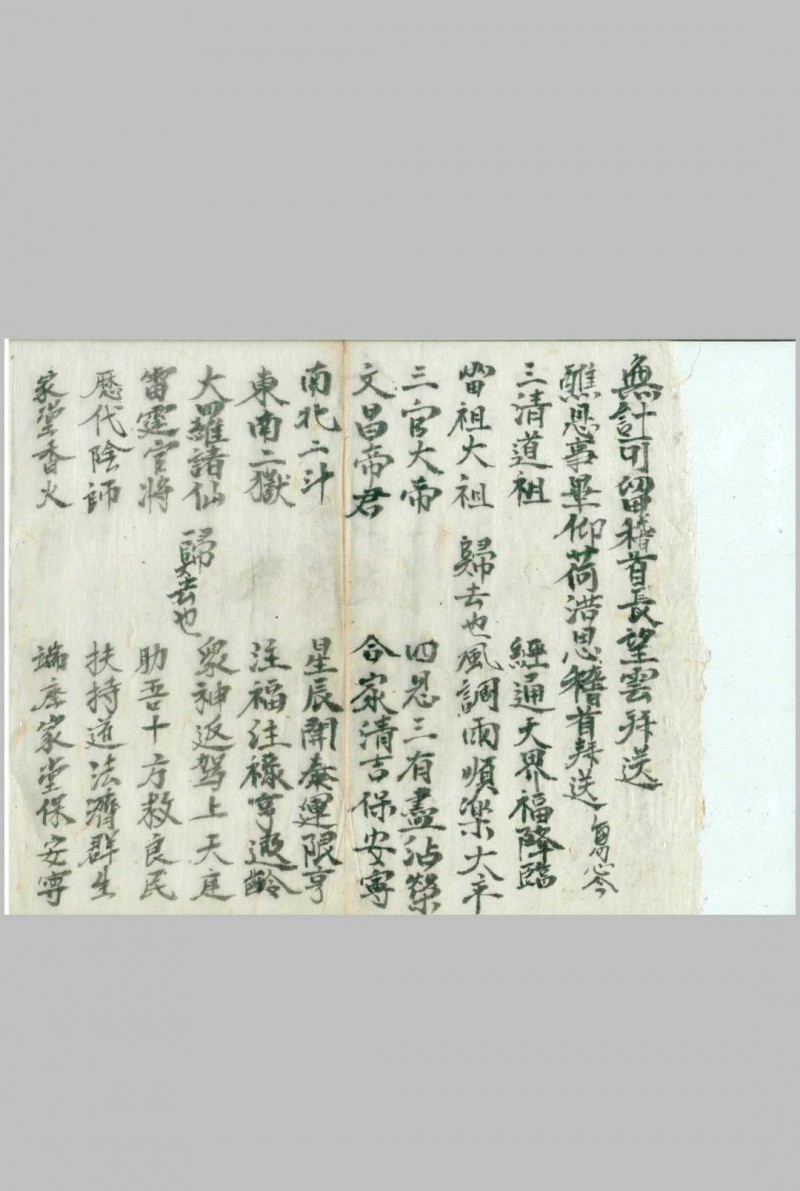 無計可留稽首長望雲拜送
醮恩事畢仰荷洪恩稽首拜送
三清道祖 經通天界福降臨
當祖大祖 歸去也 風調雨順樂大平
三官大帝 四恩三有盡沾榮
文昌帝君 合家清吉保安寧
南北二斗 星辰開泰運限亨
東南二獄 注福注祿享遐齡
大羅諸仙 歸去也 眾神返駕上天庭
雷霆官將 助吾十方救良民
歷代陰師 扶持道法濟群生
家堂香火 端座家堂保安寧